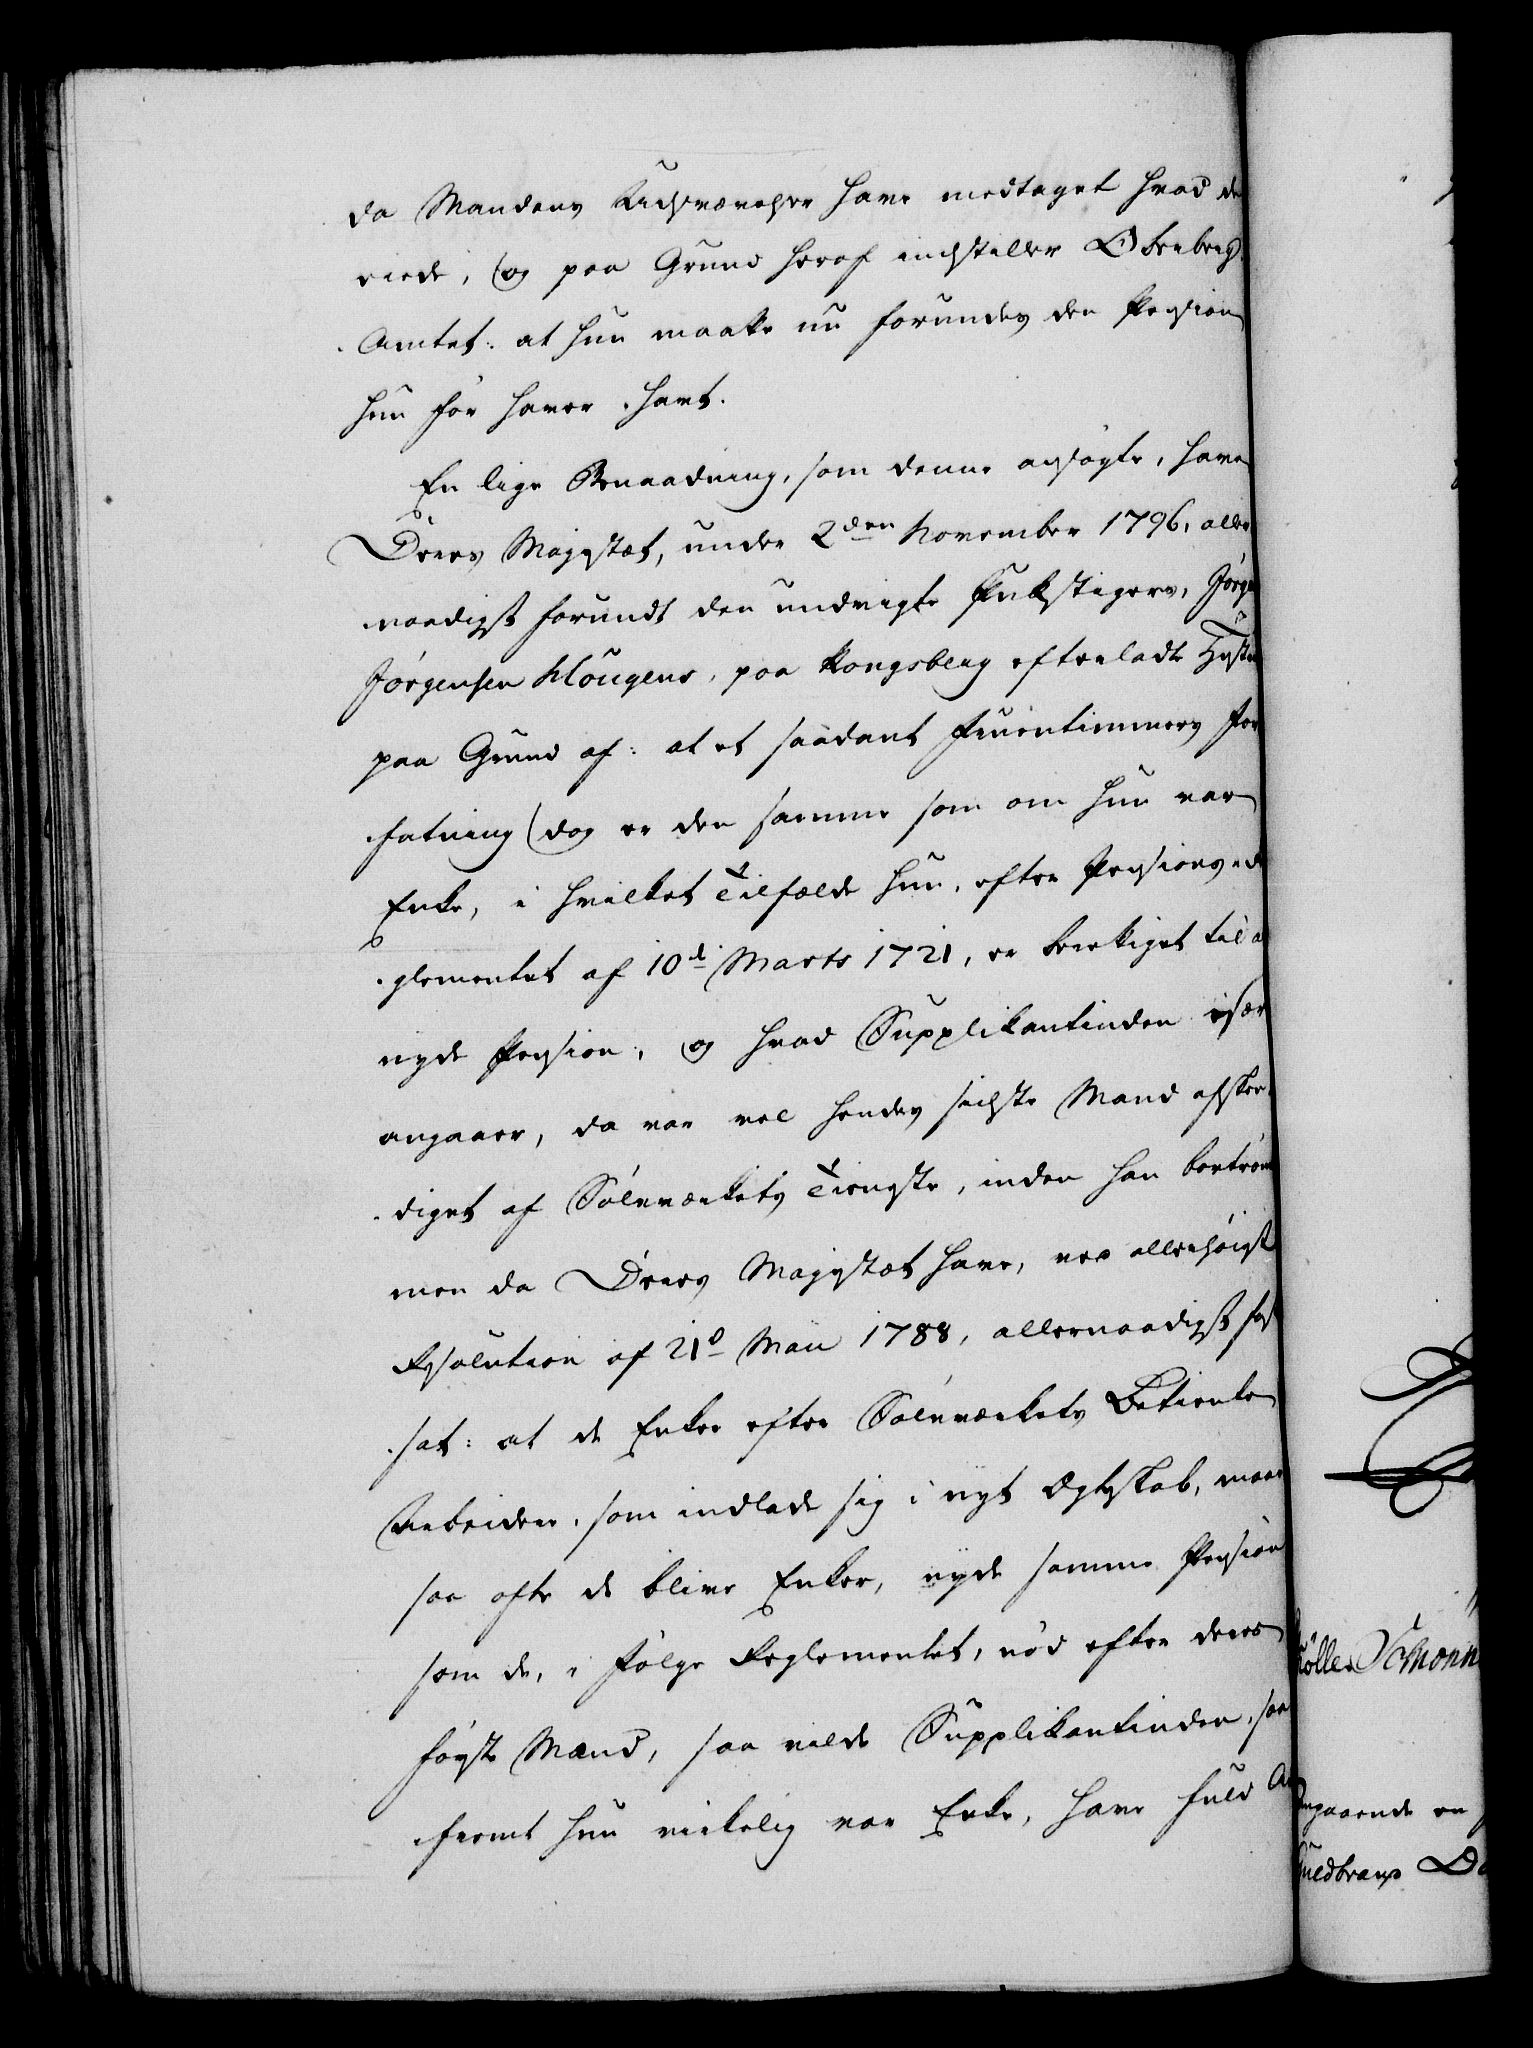 da Mandens Udsvævelser have medtaget hvad de
eiede, og paa Grund heraf indstiller Oberberg
Amtet: at hun maatte nu forundes den Pension
hun før haver havt.
En lige Benaadning, som denne ansøgte, have
Deres Majestæt, under 2den November 1796, aller
naadigst forundt den undvigte Pukstigers, Jørgen
Jørgensen Hougens, paa Kongsberg efterladte Hustru
paa Grund af: at et saadant Fruentimmers For
fatning dog er den samme som om hun var
Enke, i hvilket Tilfælde hun, efter Pensions-Re
glementet af 10d Marts 1721, er berettiget til at
nyde Pension, og hvad Supplikantinden især
angaaer, da var vel hendes sidste Mand afske
diget af Sølvværkets Tieneste, inden han bortrømte
men da Deres Majestæt have, ved allerhøiest
Resolution af 21d Maii 1788, allernaadigst fast
sat: at de Enker efter Sølvværkets Betiente
Arbeidere, som indlade sig i nyt Ægteskab, maae
saa ofte de blive Enker, nyde samme Pension
som de, i Følge Reglementet, nød efter deres
første Mand, saa vilde Supplikantinden, saa
fremt hun virkelig var Enke, have fuld A
Schønn
ngaaende en
uldbrands D